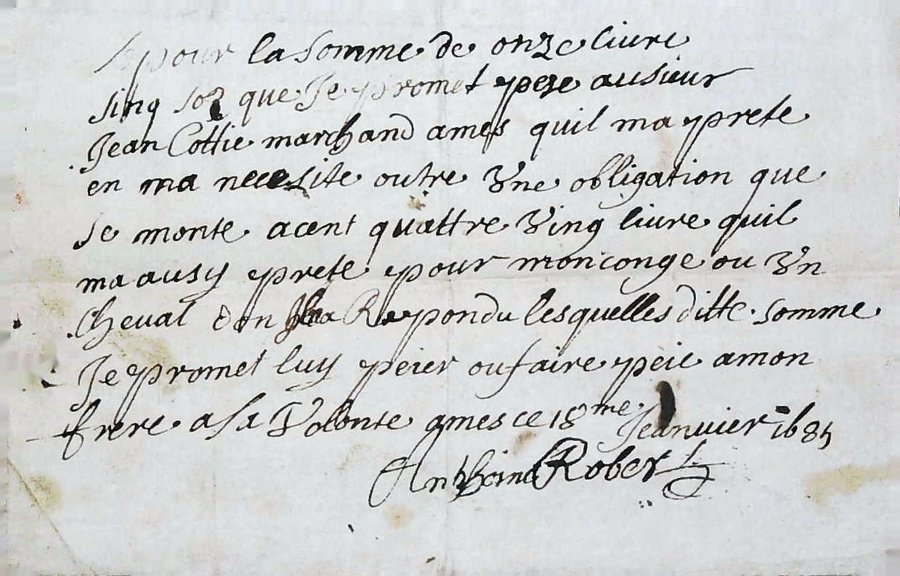 Je pour la somme de onze livre
sinq soz que Je promet peze ausieur
Jean Cottie marchand ames quil ma prete
en ma necesite outre Vne obligation que
se monte acent quattre Ving livre quil
ma ausy prete pour mon conge ou Vn
Cheval don Jl a Repondu lesquelles ditte somme
Je promet luy peier ou faire peie amon
frere a sa Volonte ames ce 18me Jeanvier 1685
Anthoine Robert